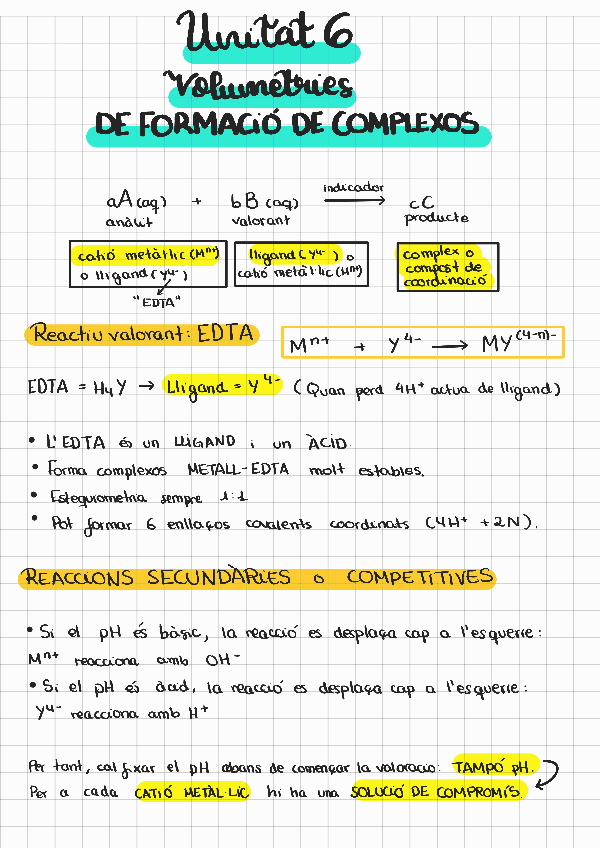 Unitat 6
Volumetries
DE FORMACIÓ DE COMPLEXOS
aA (aq) + bB (aq) indicador ⟶ cC
anàlit valorant producte
catió metàl·lic (Mⁿ⁺) o lligand (Y⁴⁻)
"EDTA"
lligand (Y⁴⁻) o catió metàl·lic (Mⁿ⁺)
complex o compost de coordinació
Reactiu valorant: EDTA
Mⁿ⁺ + Y⁴⁻ ⟶ MY⁽⁴⁻ⁿ⁾⁻
EDTA = H₄Y → Lligand = Y⁴⁻ (Quan perd 4H⁺ actua de lligand)
• L'EDTA és un LLIGAND i un ÀCID.
• Forma complexos METALL-EDTA molt estables.
• Estequiometria sempre 1:1
• Pot formar 6 enllaços covalents coordinats (4H⁺ + 2N).
REACCIONS SECUNDÀRIES o COMPETITIVES
• Si el pH és bàsic, la reacció es desplaça cap a l'esquerre:
Mⁿ⁺ reacciona amb OH⁻
• Si el pH és àcid, la reacció es desplaça cap a l'esquerre:
Y⁴⁻ reacciona amb H⁺
Per tant, cal fixar el pH abans de començar la valoracio: TAMPÓ pH.
Per a cada CATIÓ METÀL·LIC hi ha una SOLUCIÓ DE COMPROMÍS.